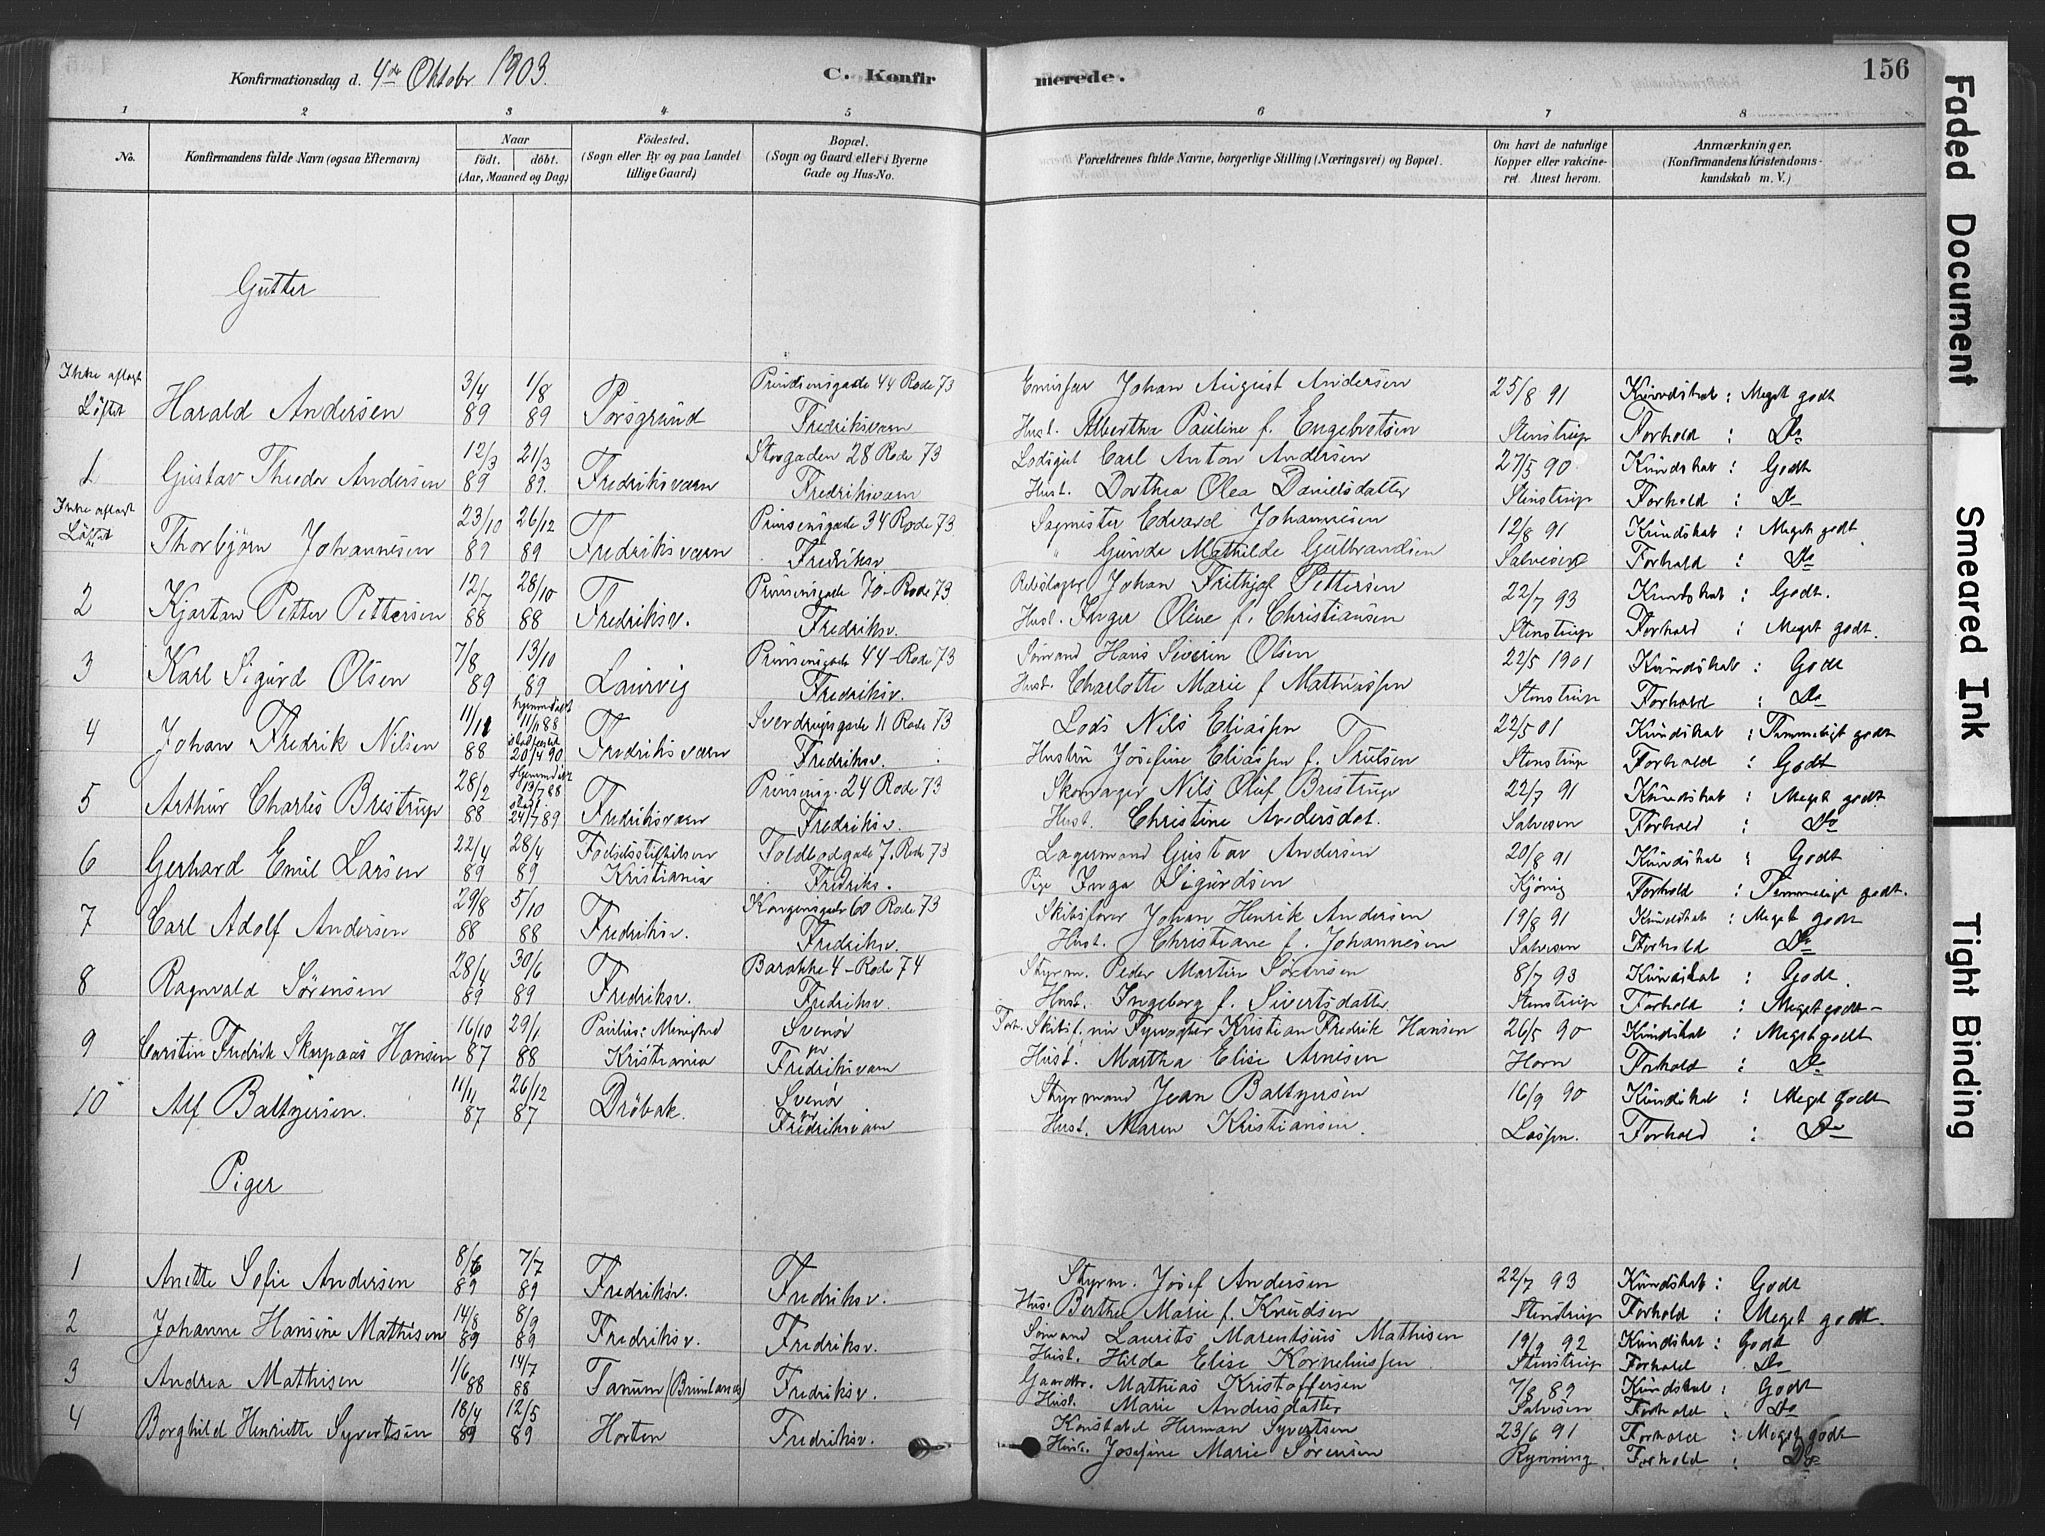 Konfirmationsdag d. 4de Oktobr 1903.
C. Konfirmerede.
156
1 2 3 4 5 6 7 8
No.
Konfirmandens fulde Navn (ogsaa Efternavn)
Naar
födt. döbt.
(Aar, Maaned og Dag)
Födested.
(Sogn eller By og paa Landet
tillige Gaard)
Bopæl.
(Sogn og Gaard eller i Byerne
Gade og Hus-No.
Forældrenes fulde Navne, borgerlige Stilling (Næringsvei) og Bopæl.
Om havt de naturlige
Kopper eller vakcine-
ret Attest herom.
Anmærkninger.
(Konfirmandens Kristendoms-
kundskab m. V.)
Gutter
Ikke aflagt 3/4 1/8 Prindsensgade 44 Rode 73 Johan August Andersen 25/8 91 Kundskab : Meget godt
Löftet Harald Andersen 89 89 Porsgrund Fredriksværn Hust. Albertha Pauline f. Engebretsen Stenstrup Forhold : Do
12/3 21/3 Storgaden 28 Rode 73 Lodsgut Carl Anton Andersen 27/5 90 Kundskab : Godt
1 Gustav Theodor Andersen 89 89. Fredriksværn Fredriksværn Hust. Dorthea Olea Danielsdatter Stenstrup Forhold : Do
Ikke aflagt 23/10 26/12 Prinsensgade 34 Rode 73 Sagmester Edvard Johannesen 12/8 91 Kundskab : Meget godt
Löftet Thorbjörn Johannesen 89 89 Fredriksværn Fredriksv. " Gunda Mathilde Gulbrandsen Salvesen Forhold : Do
12/7 28/10 Prinsensgade 70 - Rode 73 Rebslager Johan Frithjof Pettersen 22/7 93 Kundskab : Godt.
2 Kjartan Petter Pettersen 88 88 Fredriksv. Fredriksv. Hust. Inger Oline f. Christiansen Stenstrup Forhold : Meget godt.
7/8 13/10 Prinsensgade 44 - Rode 73 Sömand Hans Siverin Olsen 22/5 1901 Kundskab : Godt
3 Karl Sigurd Olsen 89 89 Laurvig Fredriksv. Hust. Charlotte Marie f. Mathiassen Stenstrup Forhold : Do
11/11 hjemmedöbt 11/11 88 Sverdrupsgade 11 Rode 73 Lods Nils Eliassen 22/5 01 Kundskab : Temmeligt godt
4 Johan Fredrik Nilsen 88 stadfestet 20/4 90 Fredriksværn Fredriksv. Hustru Josefine Eliassen f. Trulsen Stenstrup Forhold : Godt
28/2 Hjemmedöbt 13/7 88 Prinsensg. 24 Rode 73 Skomager Nils Oluf Bristrup 22/7 91 Kundskab : Meget godt
5 Arthur Charles Bristrup 88 24/7 89 Fredriksværn Fredriksv. Hust. Christine Andersdat. Salvesen Forhold : Do
22/4 28/4 Födselsstiftelsen Toldbodgade 7. Rode 73 Lagermand Gustav Andersen 20/8 91 Kundskab : Godt
6 Gerhard Emil Larsen 89 89 Kristiania Fredriks. Pige Inga Sigurdsen Kjönig Forhold : Temmeligt godt.
29/8 5/10 Kongensgade 60 Rode 73 Johan Henrik Andersen 19/8 91 Kundskab : Meget godt
7 Carl Adolf Andersen 88 88 Fredriksv. Fredriksv. Hust. Christiane f. Johannesen Salvesen Forhold Do
28/4 30/6 Barakke 4 - Rode 74 Styrm. Peder Martin Sörensen 8/7 93 Kundskab : Godt.
8 Ragnvald Sörensen 89 89 Fredriksv. Fredriksv. Hust. Ingeborg f. Sivertsdatter Stenstrup Forhold : Meget godt
16/10 29/1 Paulus: Menighed Svenör Forh. Skibst. nu Fyrvogter Kristian Fredrik Hansen 26/5 90 Kundskab : Meget godt
9 Carstin Fredrik Skarpaas Hansen 87 88 Kristiania pr Fredriksværn Hust. Martha Elise Arnesen Horn Forhold : Do
11/11 26/12 Svenör Styrmand Jean Baltzersen 16/9 90 Kundskab : Meget godt
10 Alf Baltzersen. 87 87 Dröbak. pr Fredriksværn Hust. Maren Kristiansen. Lassen. Forhold : Do
Piger
8/6 7/7 Styrm. Josef Andersen 22/7 93 Kundskab : Godt
1 Anette Sofie Andersen 89 89 Fredriksv. Fredriksv. Hus. Berthe Marie f. Knudsen Stenstrup Forhold : Meget godt.
14/8 8/9 Sömand Laurits Marentsius Mathisen 19/9 92 Kundskab : Godt
2 Johanne Hansine Mathisen 89 89 Fredriksv. Fredriksv. Hust. Hilda Elise Korneliussen Stenstrup Forhold Do
1/6 14/7 Gaardbr. Mathias Kristoffersen 7/8 89 Kundskab : Godt
3 Andrea Mathisen 88 88 Tanum (Brunlanæs) Fredriksv. Hust. Marie Andersdatter Salvesen Forhold : Do
18/4 12/5 Konstabel Herman Syvertsen 23/6 91 Forhold : Meget godt
4 Borghild Henriette Syvertsen 89 89 Horten Fredriksv. Hust. Josefine Marie Sörensen Rynning. Forhold : Do
Faded Document
Smeared Ink
Tight Binding